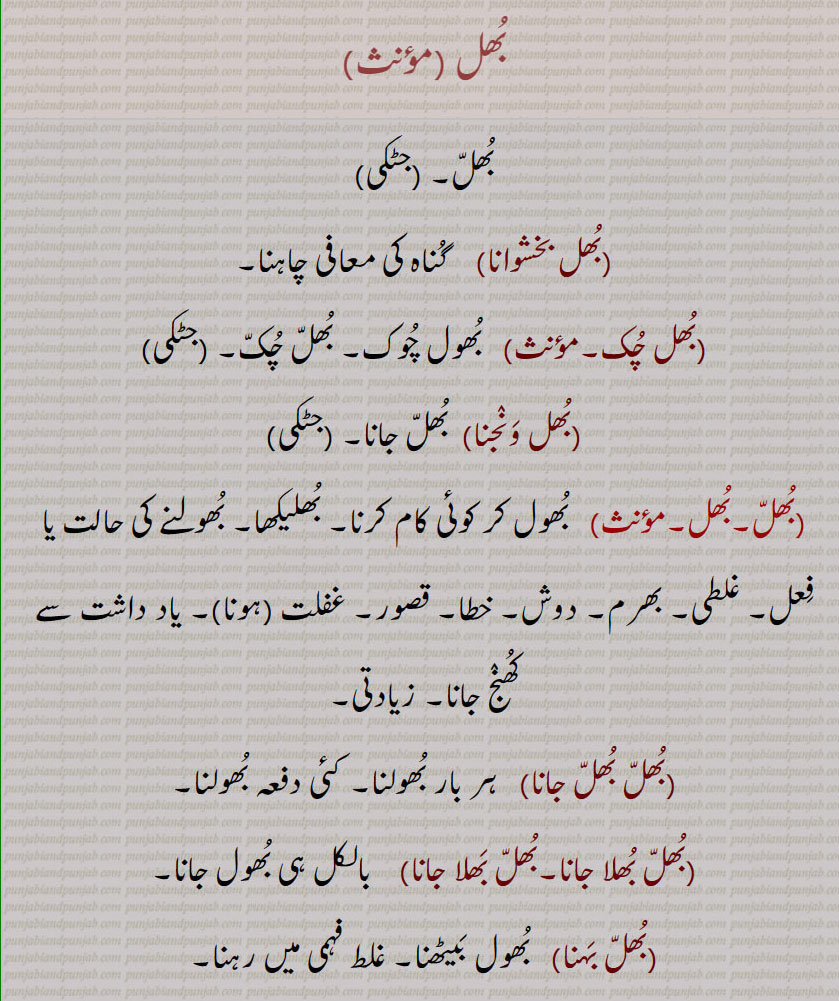 بُھل (مؤنث)
بُھلّ۔ (جٹکی)
(بُھل بخشوانا) گُناہ کی معافی چاہنا۔
(بُھل چُک۔مؤنث) بُھول چُوک۔ بُھلّ چُکّ۔ (جٹکی)
(بُھل وَنْجنا) بُھلّ جانا۔ (جٹکی)
(بُھلّ۔بُھل۔مؤنث) بُھول کر کوئی کام کرنا۔ بُھلیکھا۔ بُھولنے کی حالت یا
فِعل۔ غلطی۔ بھرم۔ دوش۔ خطا۔ قصور۔ غفلت (ہونا)۔ یاد داشت سے
کُھنْج جانا۔ زیادتی۔
(بُھلّ بُھلّ جانا) ہر بار بُھولنا۔ کئی دفعہ بُھولنا۔
(بُھلّ بُھلا جانا۔بُھلّ بَھلا جانا) بالکل ہی بُھول جانا۔
(بُھلّ بَہنا) بُھول بَیٹھنا۔ غلط فہمی میں رہنا۔
punjabiandpunjab.com